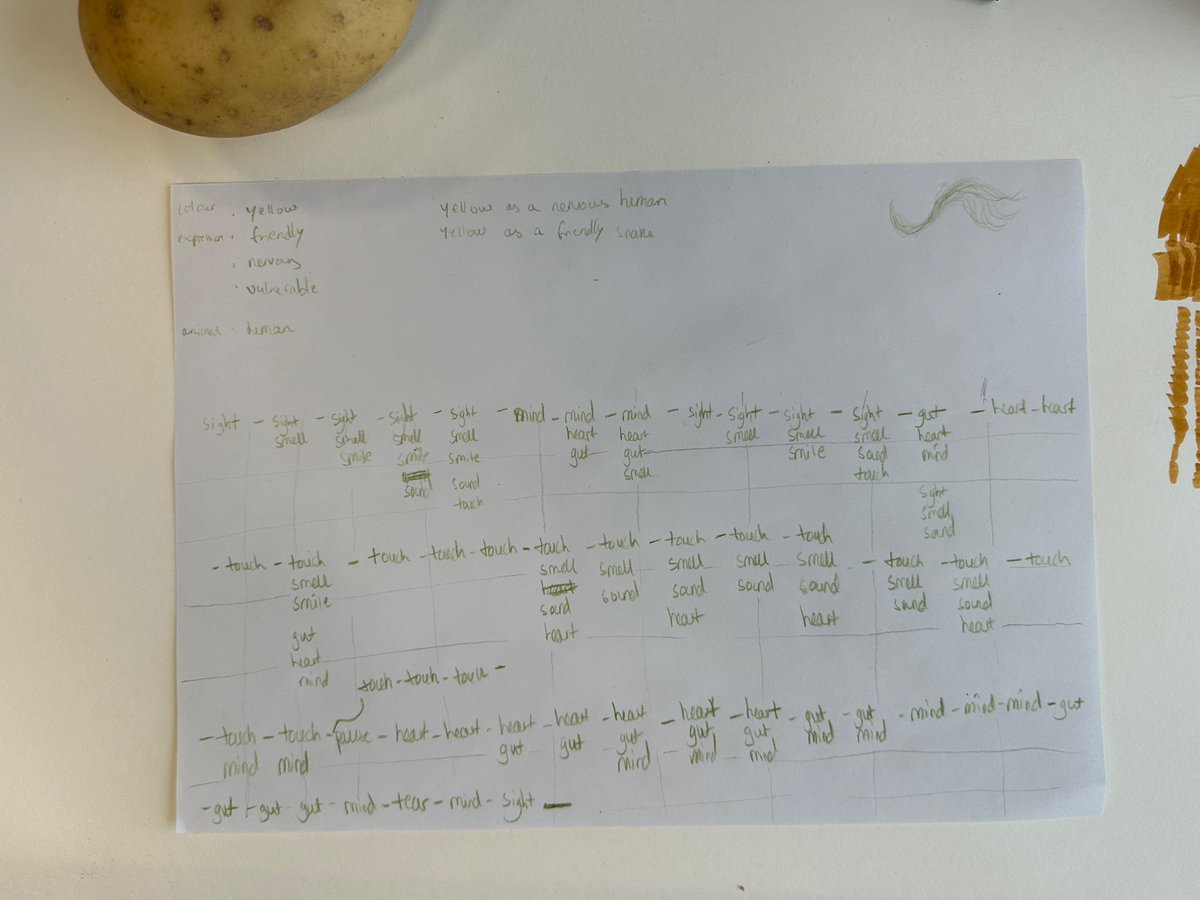 colour · yellow
expression · friendly
· nervous
· vulnerable
animal · human
yellow as a nervous human
yellow as a friendly snake
sight - sight - sight - sight - sight - mind - mind - mind - sight - sight - sight - sight - gut - heart - heart
smell smell smell smell heart heart smell smell smell heart
smile smile smile gut gut smile sound mind
sound sound smell touch sight
touch smell
sound
- touch - touch - touch - touch - touch - touch - touch - touch - touch - touch - touch - touch - touch
smell smell smell smell smell smell smell smell
smile sound sound sound sound sound sound sound
gut heart heart heart heart
heart
mind
touch - touch - touch -
- touch - touch - pause - heart - heart - heart - heart - heart - heart - heart - gut - gut - mind - mind - mind - gut
mind mind gut gut gut gut gut mind mind
mind mind mind
- gut - gut - gut - mind - tear - mind - sight —